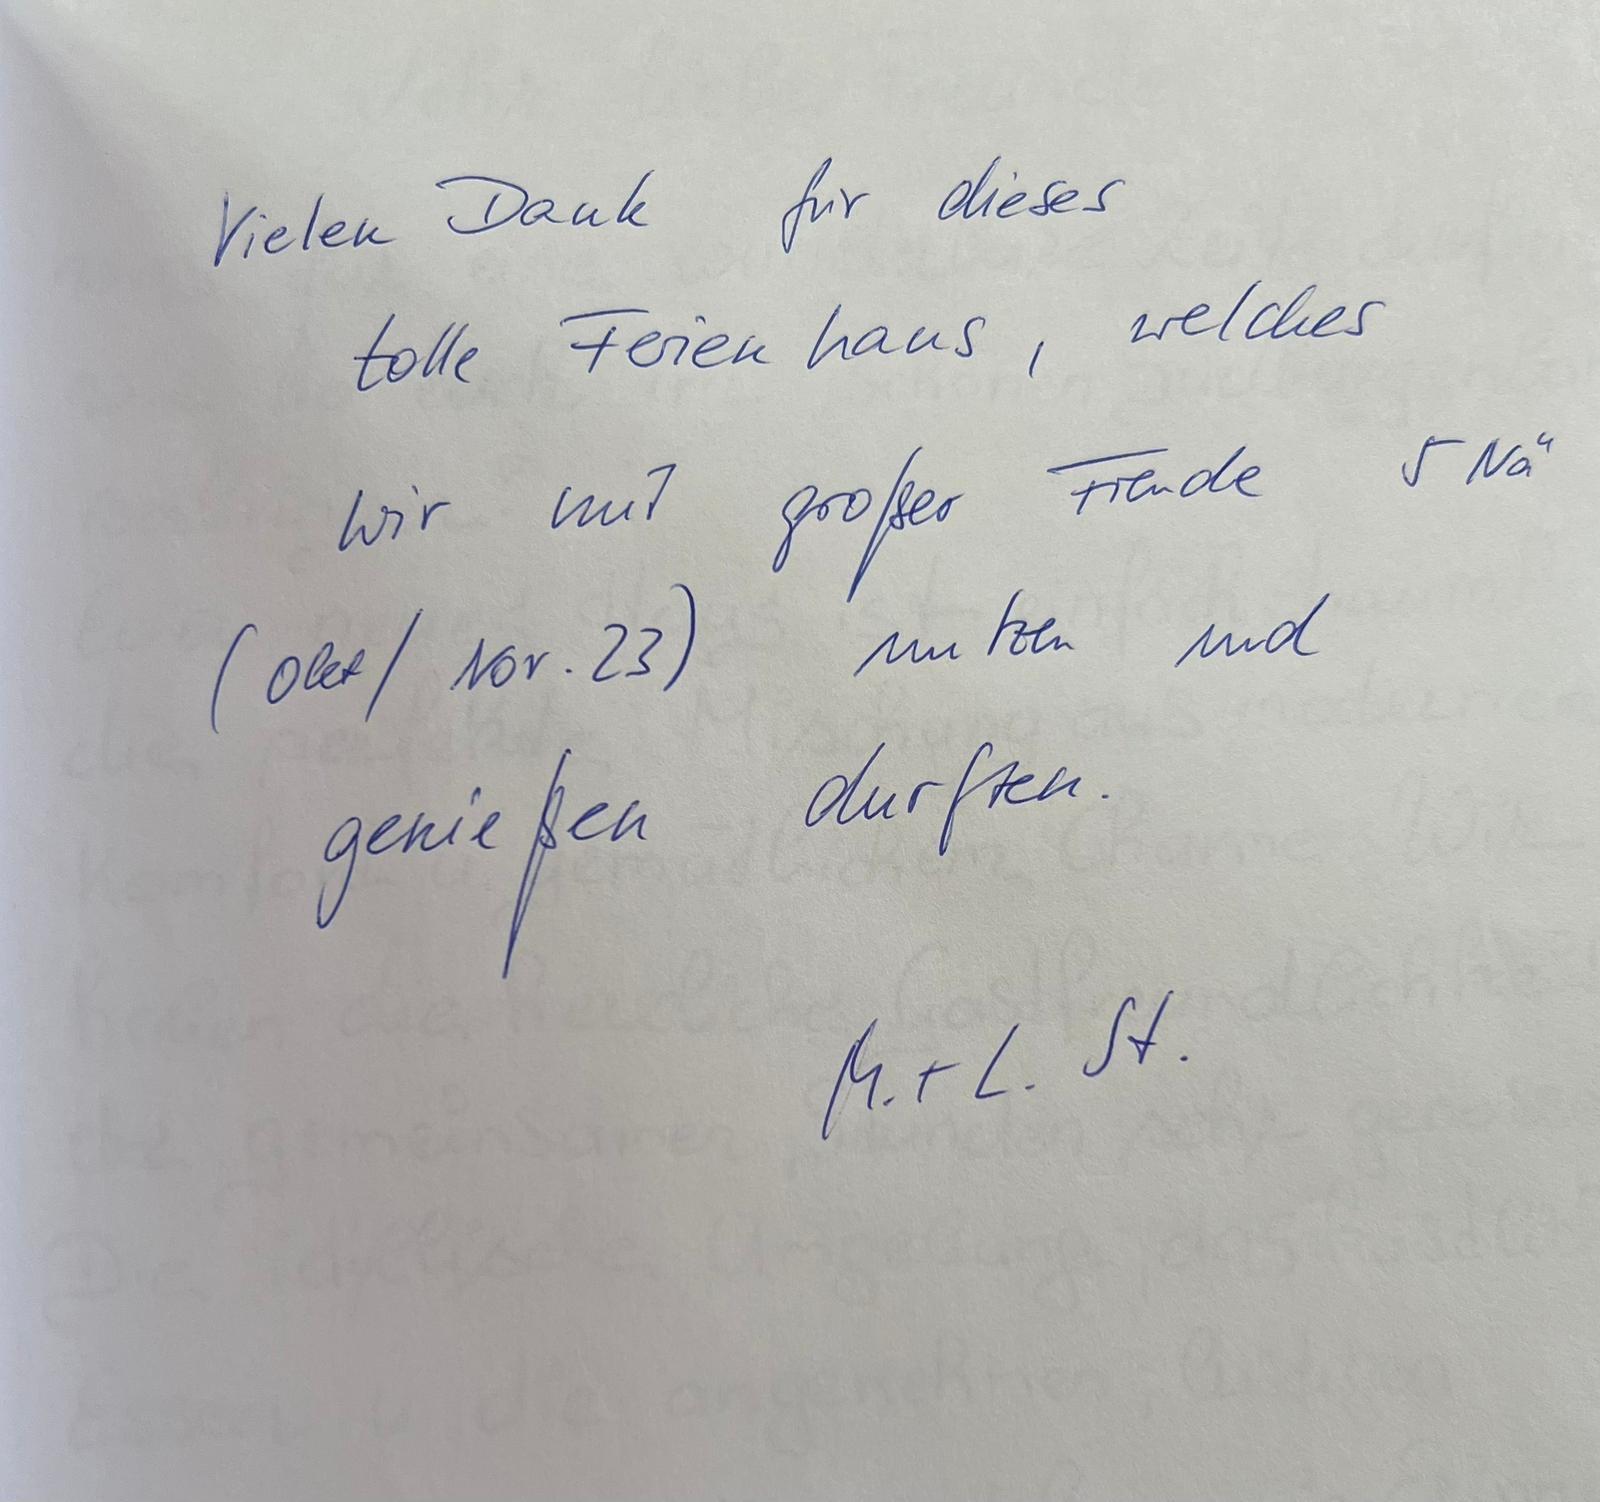 Vielen Dank für dieses
tolle Ferienhaus, welches
wir mit großer Freude 5 Nä
(Okt/ Nov. 23) nutzen und
genießen durften.
M. + L. St.